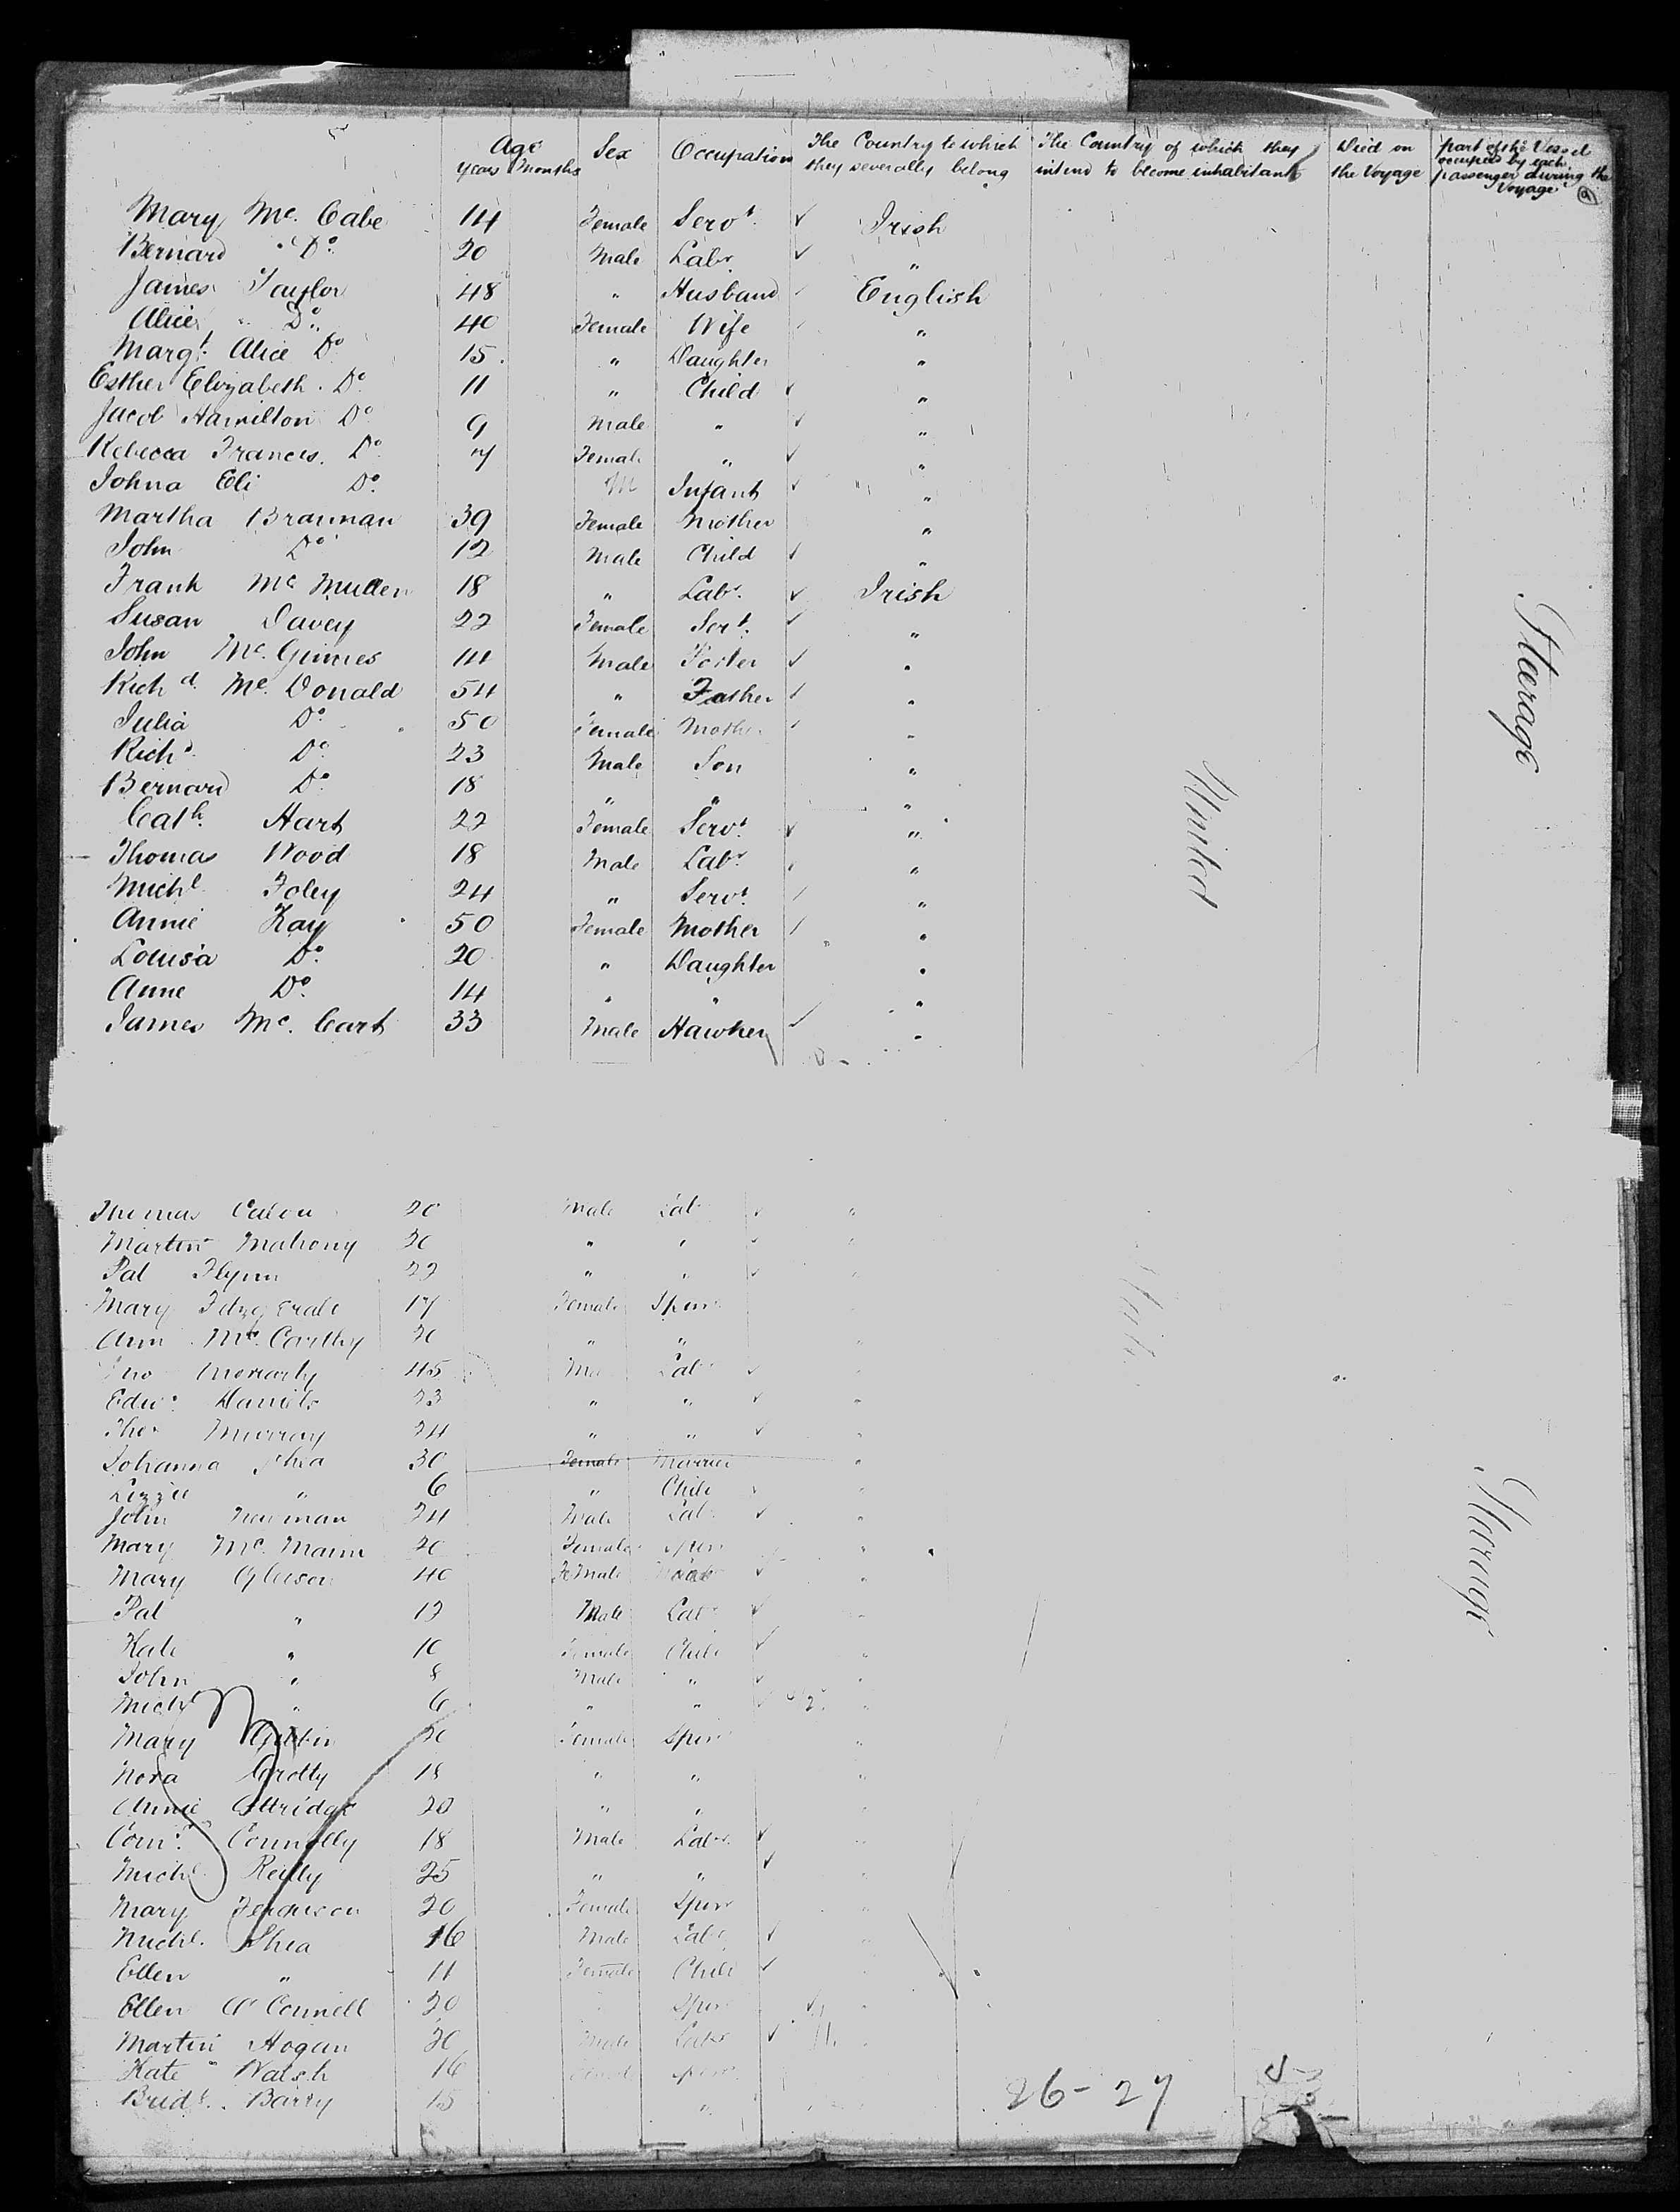 Age Sex Occupation The Country to which The Country of which they Died on part of the Vessel
years months they severally belong intend to become inhabitants the Voyage occupied by each
passenger during the
Voyage
Mary Mc. Cabe 14 Female Servt. Irish
Bernard Do. 20 Male Labr. "
James Taylor 48 " Husband English
Alice Do. 40 Female Wife "
Margt. Alice Do. 15 " Daughter "
Esther Elizabeth Do. 11 " Child "
Jacob Hamilton Do. 9 Male " "
Rebecca Francis. Do. 7 Female " "
Johna Eli Do. M Infant "
Martha Brannan 39 Female Mother "
John Do. 12 Male Child "
Frank Mc Mullen 18 " Labr. Irish
Susan Davey 22 Female Sert. "
John Mc. 14 Male "
Richd. Mc. Donald 54 " Father "
Julia Do. 50 Female Mother "
Richd. Do. 23 Male Son "
Bernard Do. 18 " " "
Cath. Hart 22 Female Servt. "
Thomas Wood 18 Male Labr. "
Michl. Foley 24 " Servt. "
Annie Kay 50 Female Mother "
Louisa Do. 20 " Daughter "
Anne Do. 14 " " "
James Mc. Cart 33 Male Hawker "
United
Steerage
Thomas 20 Male Labr "
Martin Mahony 20 " " "
Pat Flynn 22 " " "
Mary Fitzgerald 17 Female Spinr
Ann Mc. Carthy 20 " " "
Jno Moriarty 45 Male Labr "
Edwd. Daniels 23 " " "
Thos Murray 24 " " "
Johanna Shea 30 Female Married "
Lizzie " 6 " Child "
John Newman 24 Male Labr "
Mary Mc. 20 Female Spinr "
Mary Gleeson 40 Female "
Pat " 12 Male Labr "
Kate " 10 Female Child "
John " 8 Male " "
Michl " 6 " " "
Mary 20 Female Spinr "
Nora Crotty 18 " " "
Annie Attridge 20 " " "
Corns. Connolly 18 Male Labr. "
Michl. Reilly 25 " " "
Mary Ferguson 20 Female Spinr "
Michl. Shea 16 Male Labr "
Ellen " 11 Female Child "
Ellen O'Connell 20 Spinr "
Martin Hogan 20 Male Labr "
Kate Walsh 16 Female Spinr
Bridt. Barry 18 "
Steerage
26-27